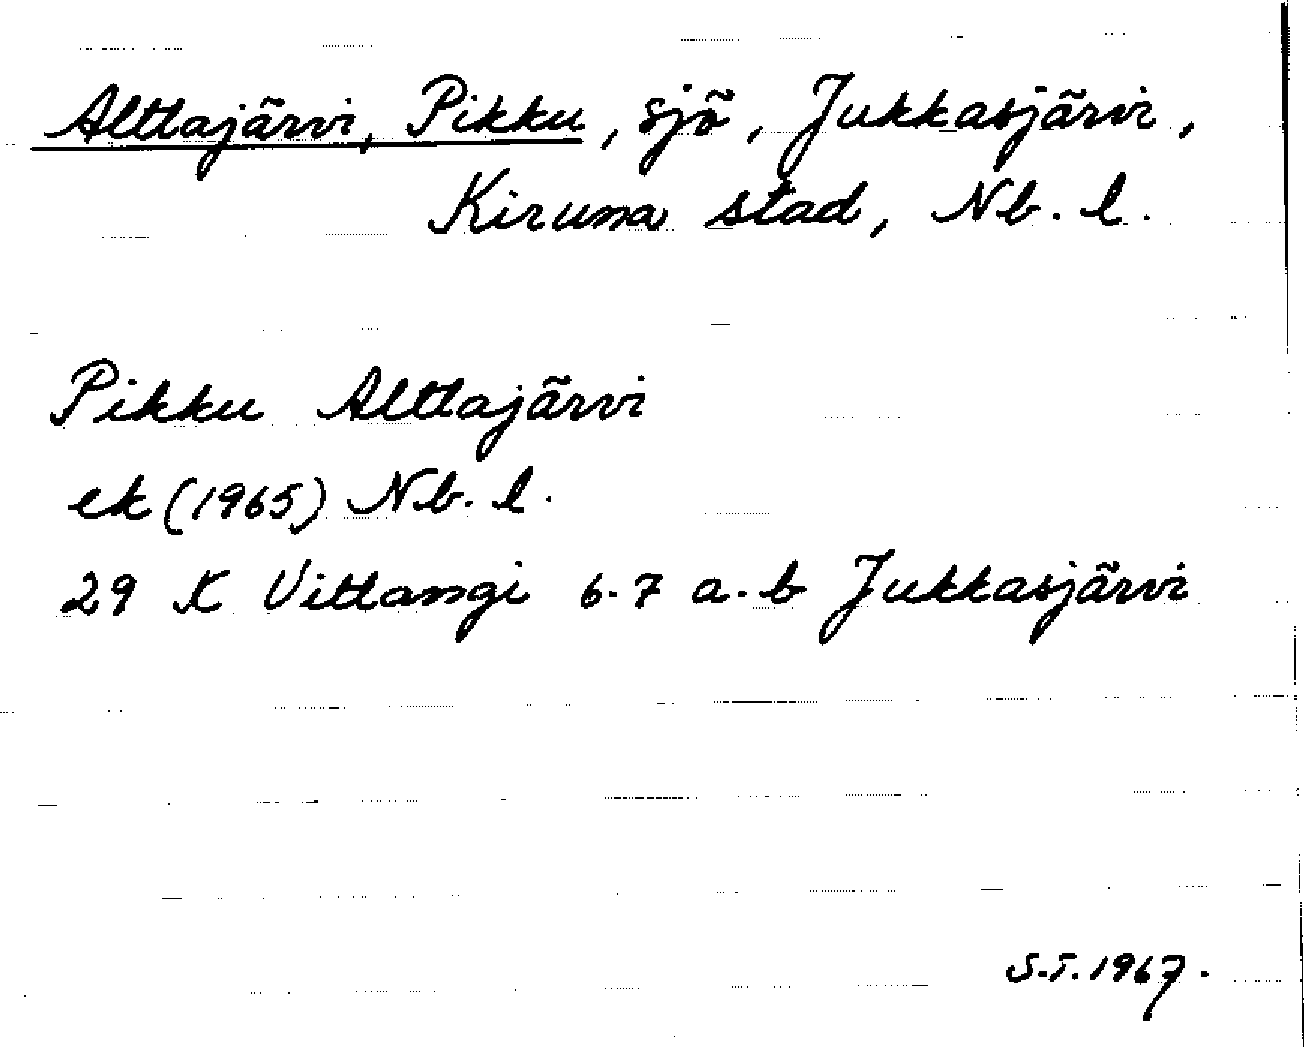 Alttajärvi, Pikku, sjö, Jukkasjärvi,
Kiruna stad, Nb. l.
Pikku Alttajärvi
ek (1965) Nb. l.
29 K Vittangi 6-7 a-b Jukkasjärvi
S.T. 1967.